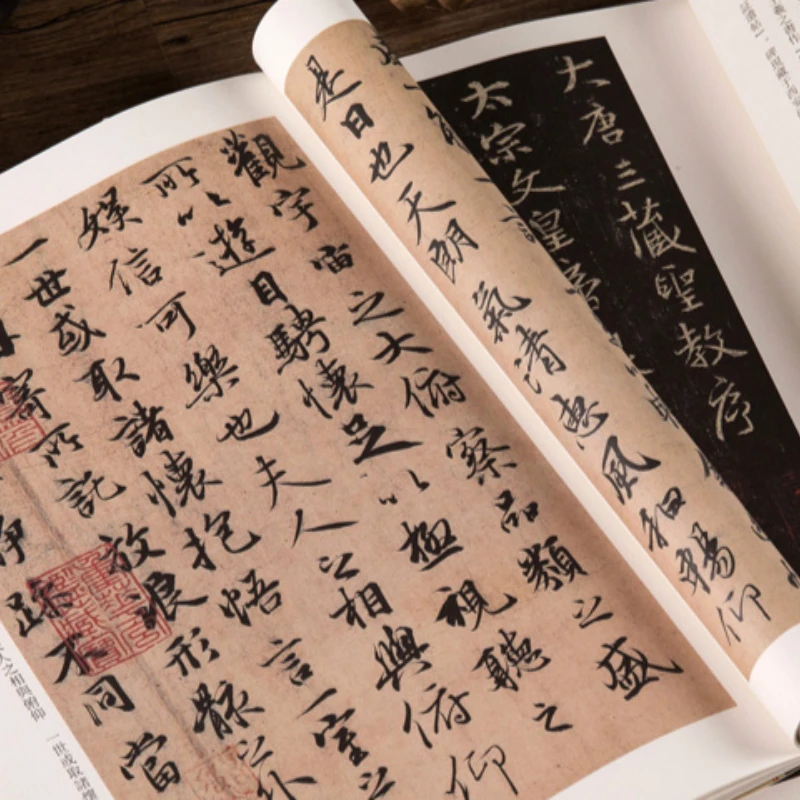 大唐三藏聖教序
太宗文皇帝
是日也天朗氣清惠風和暢仰
觀宇宙之大俯察品類之盛
所以遊目騁懷足以極視聽之
娛信可樂也夫人之相與俯仰
一世或取諸懷抱悟言一室之
寄所託放浪形骸之外
靜躁不同當
人之相與俯仰 一世或取諸懷